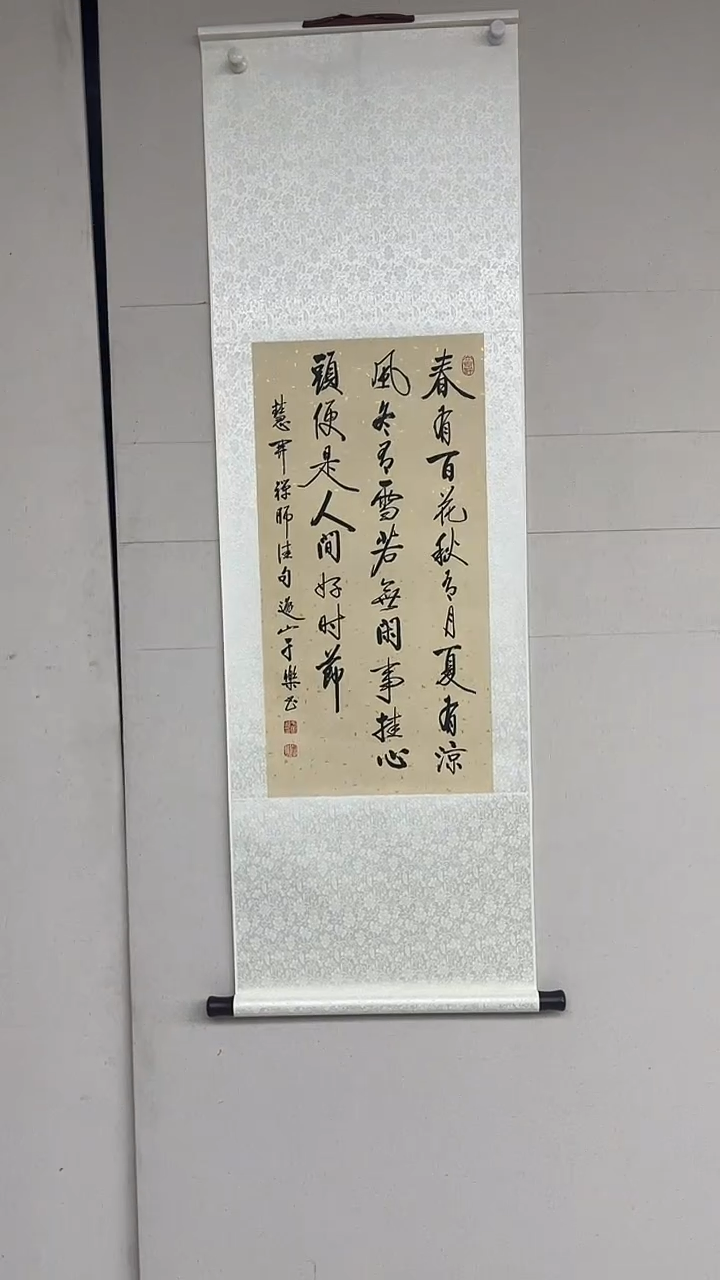 春有百花秋有月夏有涼
風冬有雪若無閑事挂心
頭便是人間好时節
慧開禅師佳句遊山子樂书